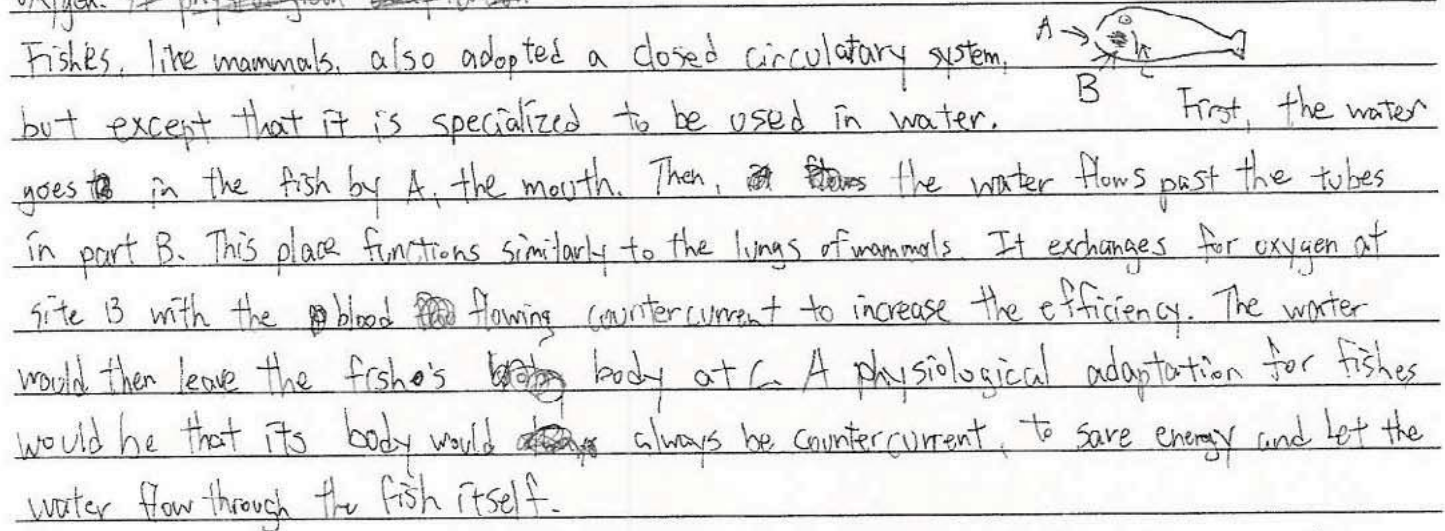 oxygen.
Fishes, like mammals, also adopted a closed circulatary system, A
B C
but except that it is specialized to be used in water. First, the water
goes in the fish by A, the mouth. Then, the water flows past the tubes
in part B. This place functions similarly to the lungs of mammals. It exchanges for oxygen at
site B with the blood flowing countercurrent to increase the efficiency. The water
would then leave the fishe's body at C. A physiological adaptation for fishes
would be that its body would always be countercurrent, to save energy and let the
water flow through the fish itself.